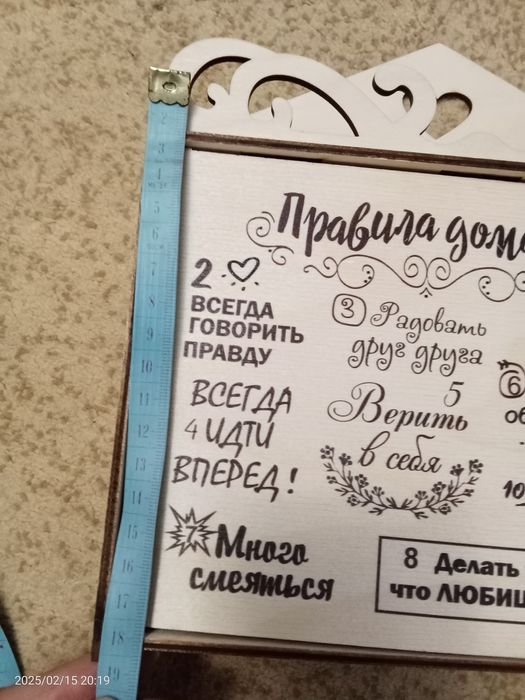 Правила дом
2
ВСЕГДА
ГОВОРИТЬ
ПРАВДУ
3 Радовать
друг друга
6
об
ВСЕГДА
4 ИДТИ
ВПЕРЕД!
5
Верить
в себя
10
7 Много
смеяться
8 Делать
что ЛЮБИШ
2
3
4
5
6
7
8
9
10
11
12
13
14
15
16
17
18
19
2025/02/15 20:19